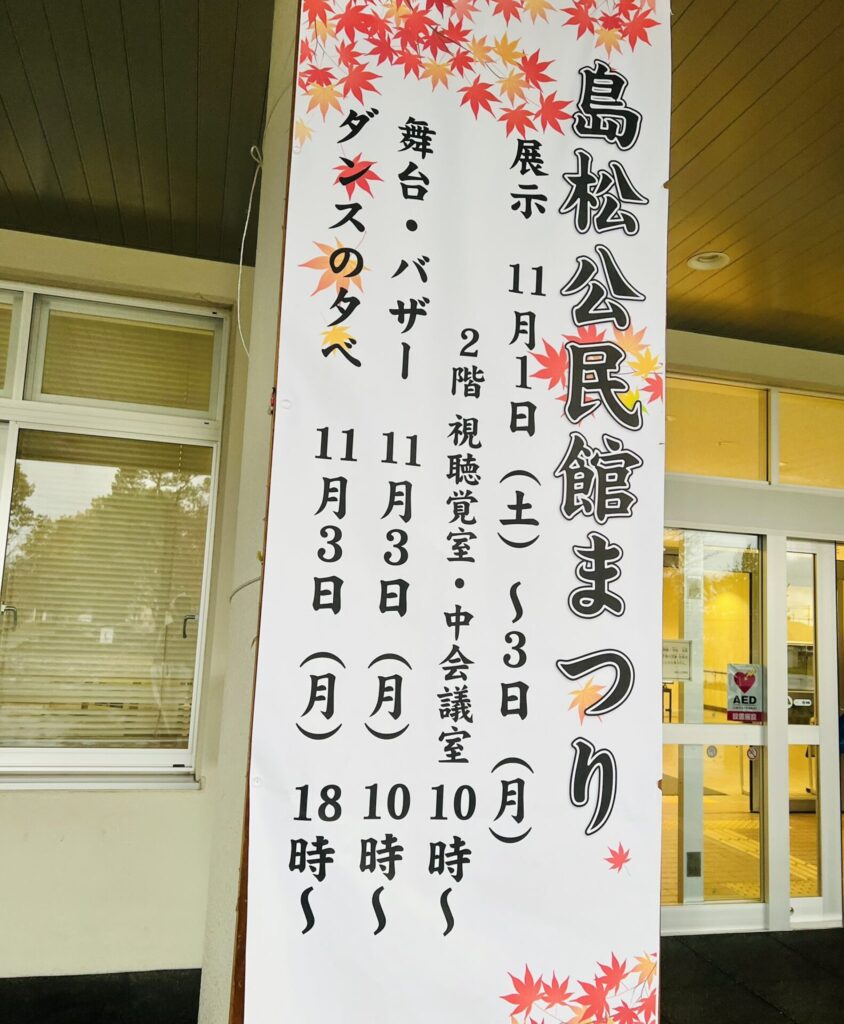 島松公民館まつり
展示 11月1日(土)～3日(月)
2階 視聴覚室・中会議室 10時～
舞台・バザー 11月3日(月) 10時～
ダンスの夕べ 11月3日(月) 18時～
AED